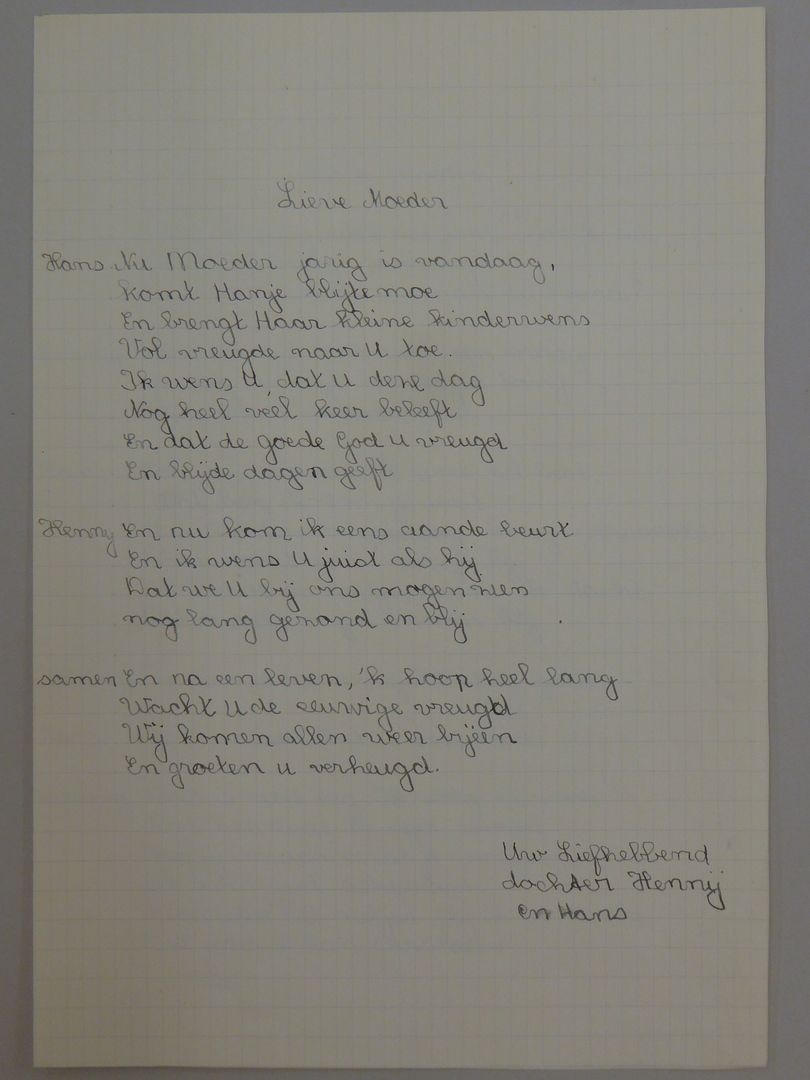 Lieve Moeder
Hans Nu Moeder jarig is vandaag,
komt Hanje blij te moe
En brengt Haar kleine kinderwens
Vol vreugde naar U toe.
Ik wens U, dat U deze dag
Nog heel veel keer beleeft
En dat de goede God U vreugd
En blijde dagen geeft
Henny En nu kom ik eens aande beurt
En ik wens U juist als hij
Dat we U bij ons mogen zien
nog lang gezond en blij
samen En na een leven, 'k hoop heel lang
Wacht U de eeuwige vreugd
Wij komen allen weer bijeen
En groeten u verheugd.
Uw Liefhebbend
dochter Hennij
en Hans